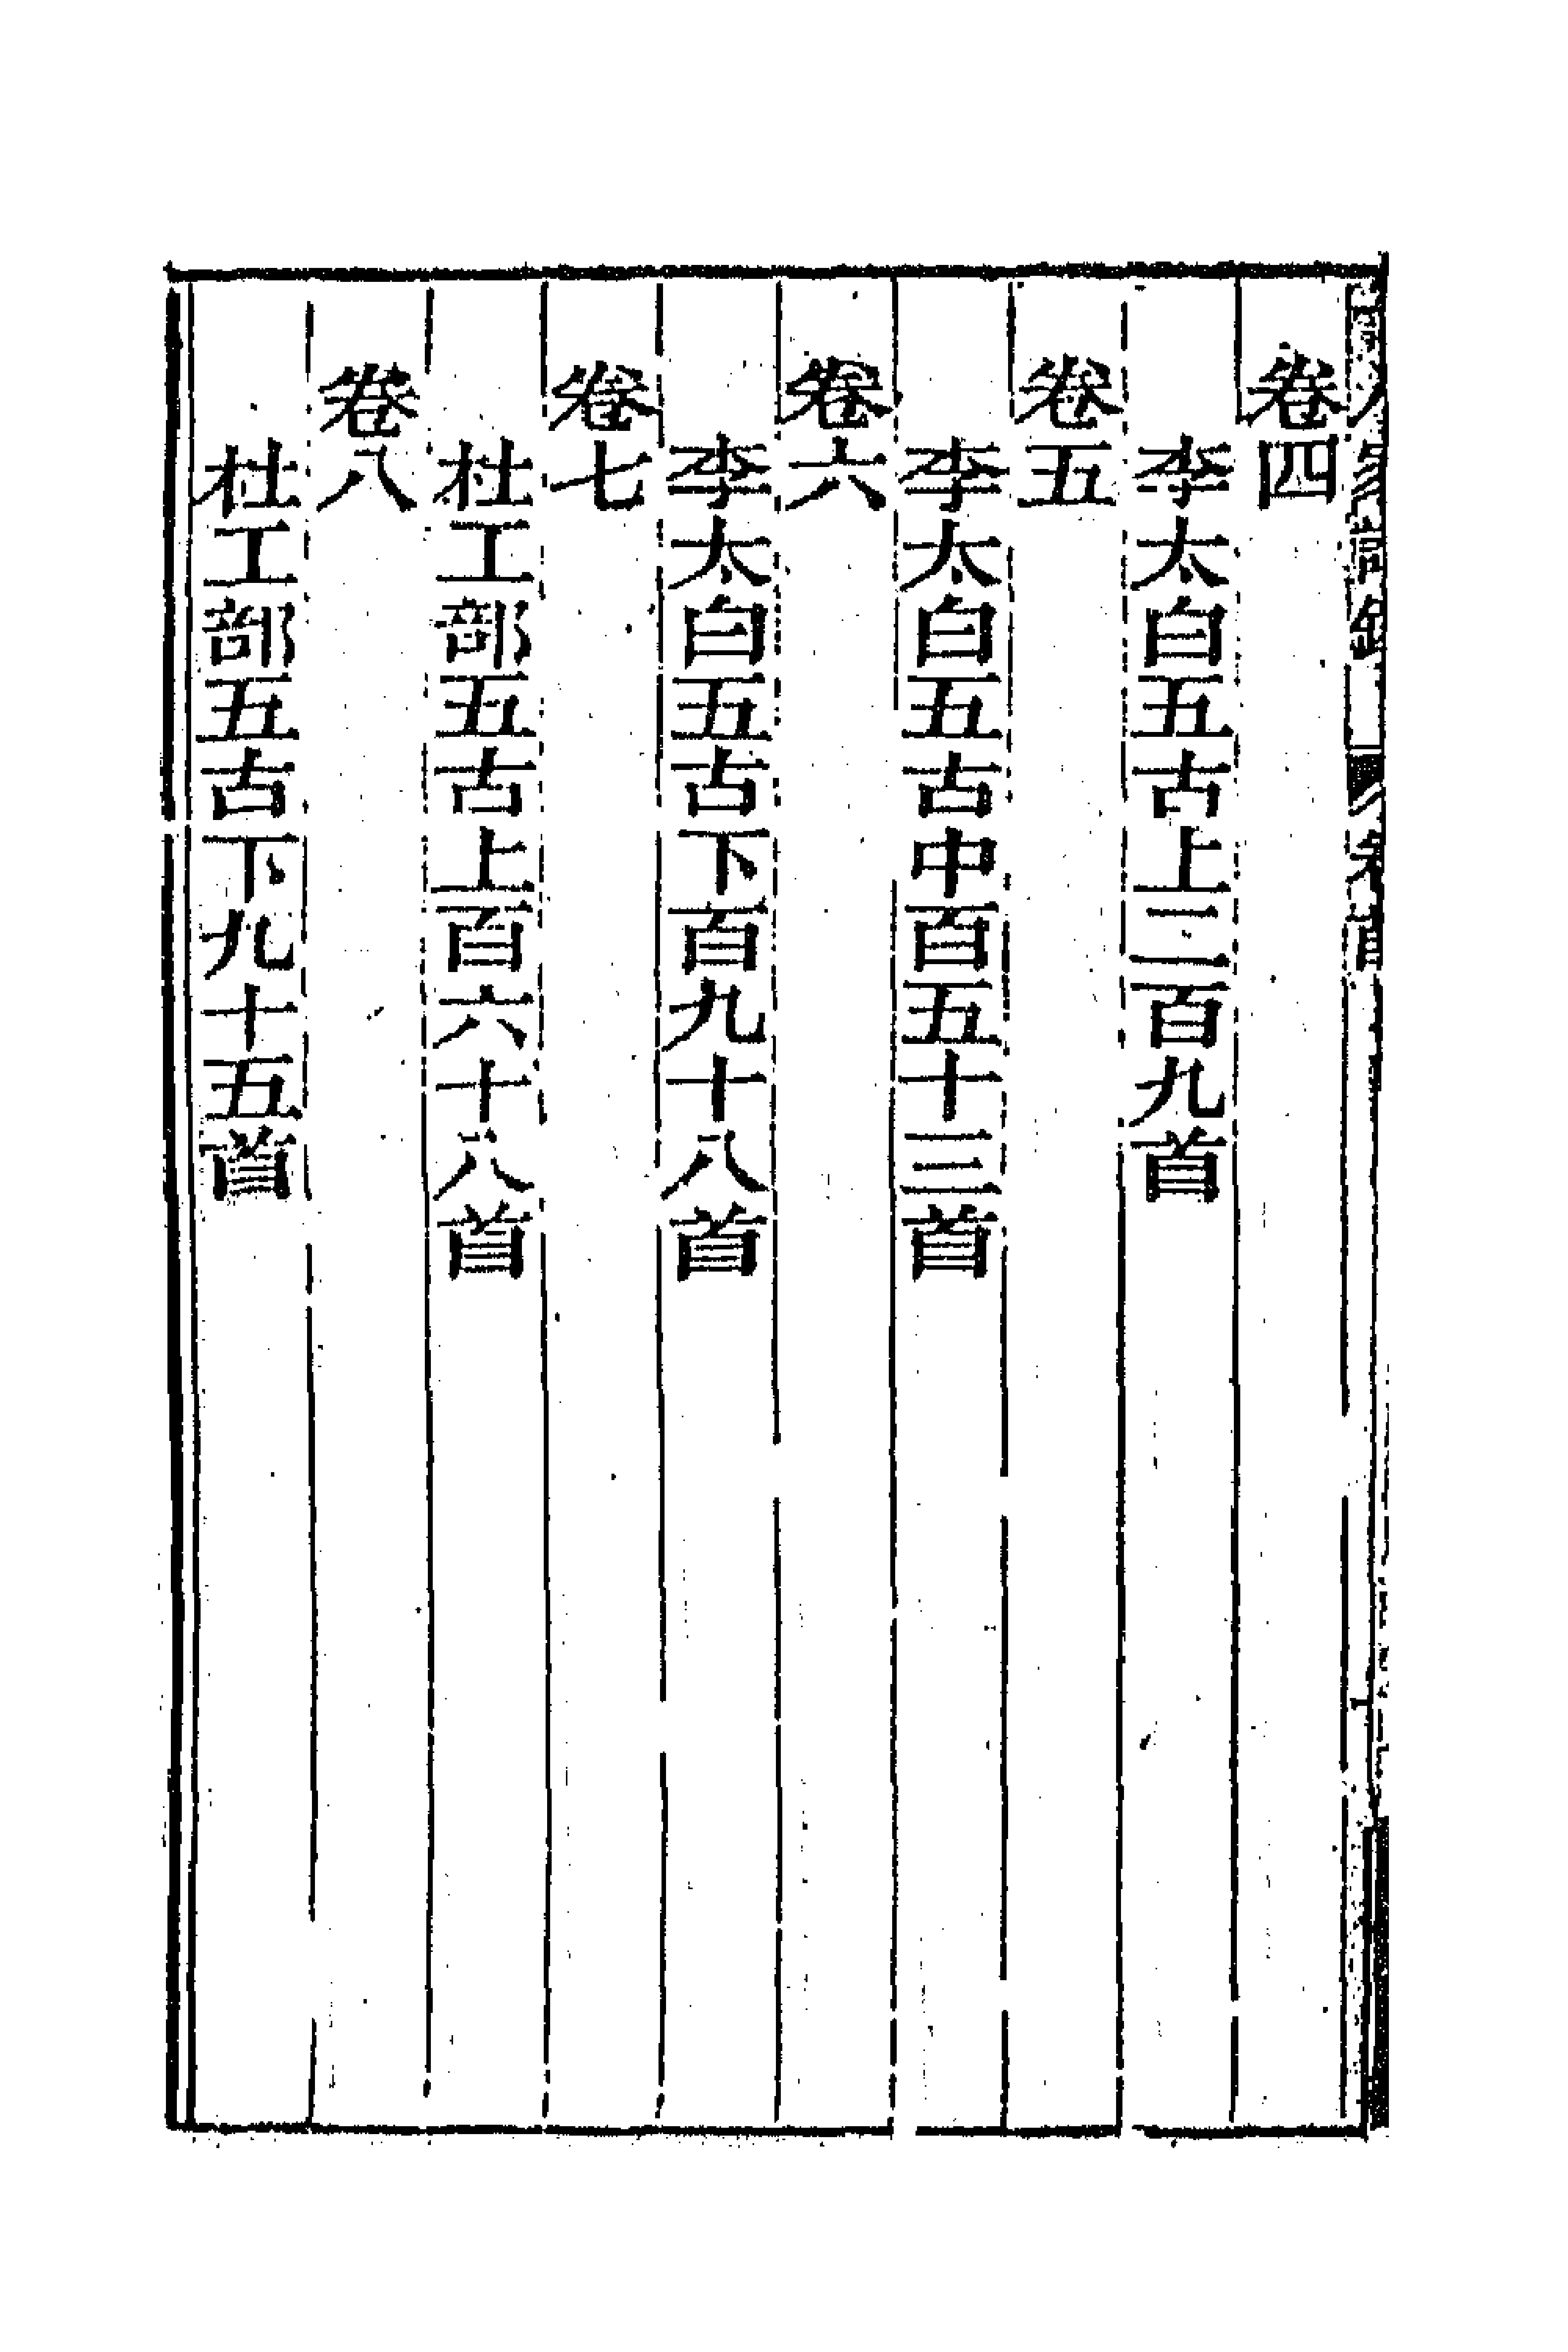 卷四
李太白五古上二百九首
卷五
李太白五古中百五十三首
卷六
李太白五古下百九十八首
卷七
杜工部五古上百六十八首
卷八
杜工部五古下九十五首